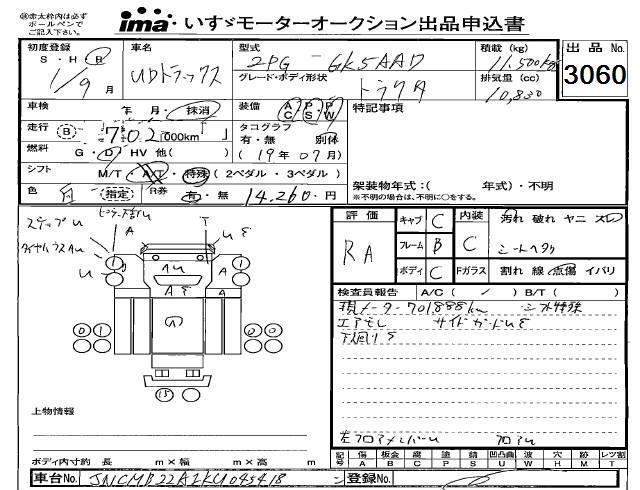 ㊟赤太枠内は必ず
ボールペンで
ご記入下さい。
ima・いすゞモーターオークション出品申込書
初度登録 車名 型式 積載(kg) 出品No.
S・H・R UDトラックス 2PG-GK5AAD 11,500kg 3060
1/9月 グレード・ボディ形状 トラクタ 排気量(cc) 10,830
車検 年 月・抹消 装備 AC PS PW 特記事項
走行 702,000km タコグラフ 有・無 別体
燃料 G・D・HV 他( ) (19年07月)
シフト M/T・A/T・特殊 (2ペダル・3ペダル)
色 白 指定 R券 有・無 14,260円
架装物年式:( 年式)・不明
※不明の場合は、不明に○をする。
評価 キャブ C 内装 汚れ 破れ ヤニ スレ
RA フレーム B C シートヘタり
ボディ C Fガラス 割れ 線 点傷 イバリ
検査員報告 A/C( / ) B/T( )
現メーター701,888km シフト特殊
エアモレ サイドガードUS
下廻りS
ステップU
上物情報
ボディ内寸約 長 m×幅 m×高 m
記号 傷A 板金B 腐C 塗P 錆S 凹凸曲U 波W 穴H 跡M レツ割T
車台No. JNCMB22A1KU045418
登録No.